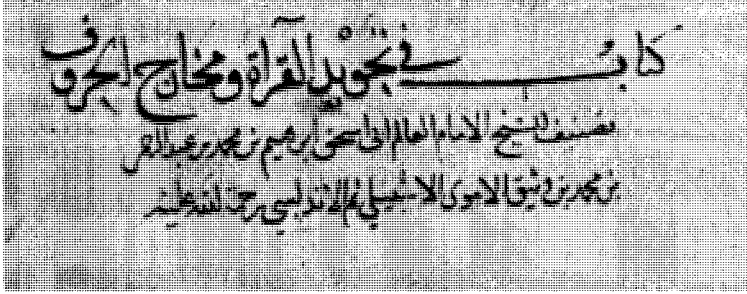 كتاب في تجويد القرآة ومخارج الحروف
تصنيف الشيخ الامام العالم ابى اسحق ابرهيم بن محمد بن عبد الرحمن
بن محمد بن وثيق الاموى الاشبيلي ثم الاندلسي رحمة الله عليه